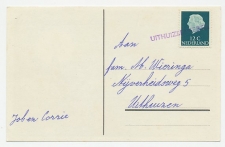 UITHUIZEN
12 C
NEDERLAND
Aan
fam. Mb. Wieringa
Nijverheidsweg 5
Uithuizen
Joh en Corrie